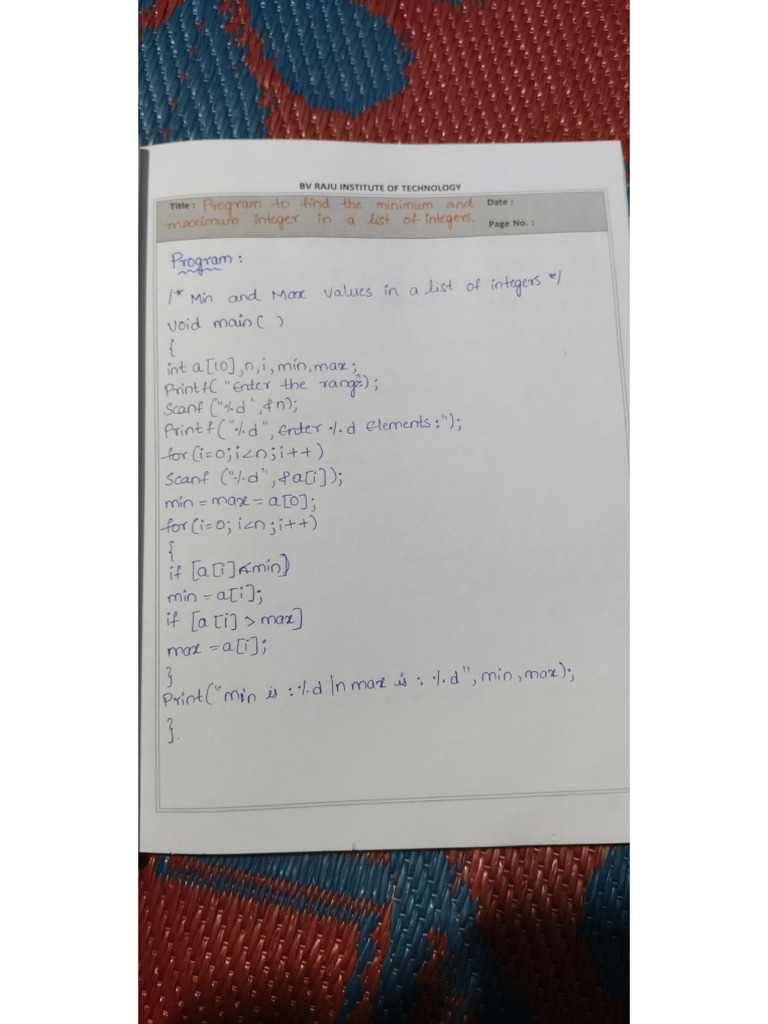 BV RAJU INSTITUTE OF TECHNOLOGY
Title : Program to find the minimum and Date :
maximum integer in a list of integers. Page No. :
Program :
/* Min and Max values in a list of integers */
void main( )
{
int a[10],n,i,min,max;
Printf( "Enter the range");
Scanf ("%d",&n);
Printf("%d", Enter %d Elements:");
for(i=0;i<n;i++)
Scanf ("%d",&a[i]);
min = max = a[0];
for(i=0; i<n;i++)
{
if [a[i]<min])
min = a[i];
if [a[i] > max]
max = a[i];
}
Print("min is :%d \n max is : %d", min, max);
}.